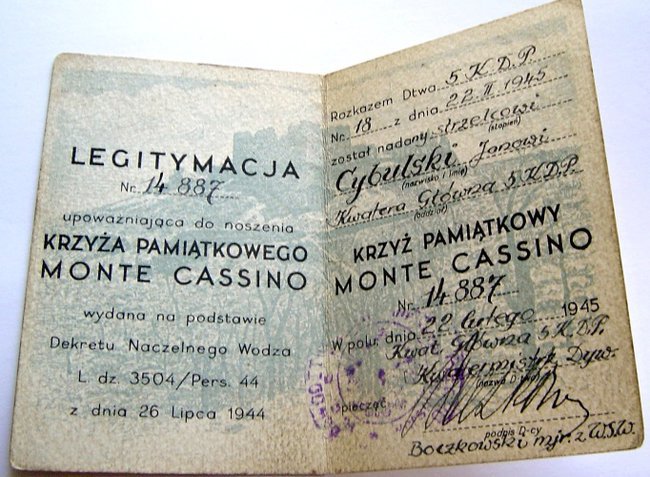 LEGITYMACJA
Nr. 14 887
upoważniająca do noszenia
KRZYŻA PAMIĄTKOWEGO
MONTE CASSINO
wydana na podstawie
Dekretu Naczelnego Wodza
L. dz. 3504/Pers. 44
z dnia 26 Lipca 1944
Rozkazem Dtwa 5 K D P
Nr. 18 z dnia 22 II 1945
został nadany strzelcowi
(stopień)
Cybulski Janowi
(nazwisko i imię)
Kwatera Główna 5 K.D.P.
(oddział)
KRZYŻ PAMIĄTKOWY
MONTE CASSINO
Nr. 14 887
W polu, dnia 22 lutego 1945
Kwat. Główna 5 K.D.P.
Kwatermistrz Dyw.
(nazwa D-twa)
pieczęć
podpis D-cy
Boczkowski mjr. z W.S.W.